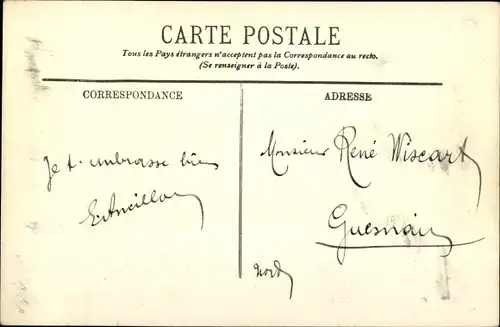 CARTE POSTALE
Tous les Pays étrangers n'acceptent pas la Correspondance au recto.
(Se renseigner à la Poste).
CORRESPONDANCE
ADRESSE
Je t'embrasse bien
Monsieur René Wiscart
Guesnain
Nord